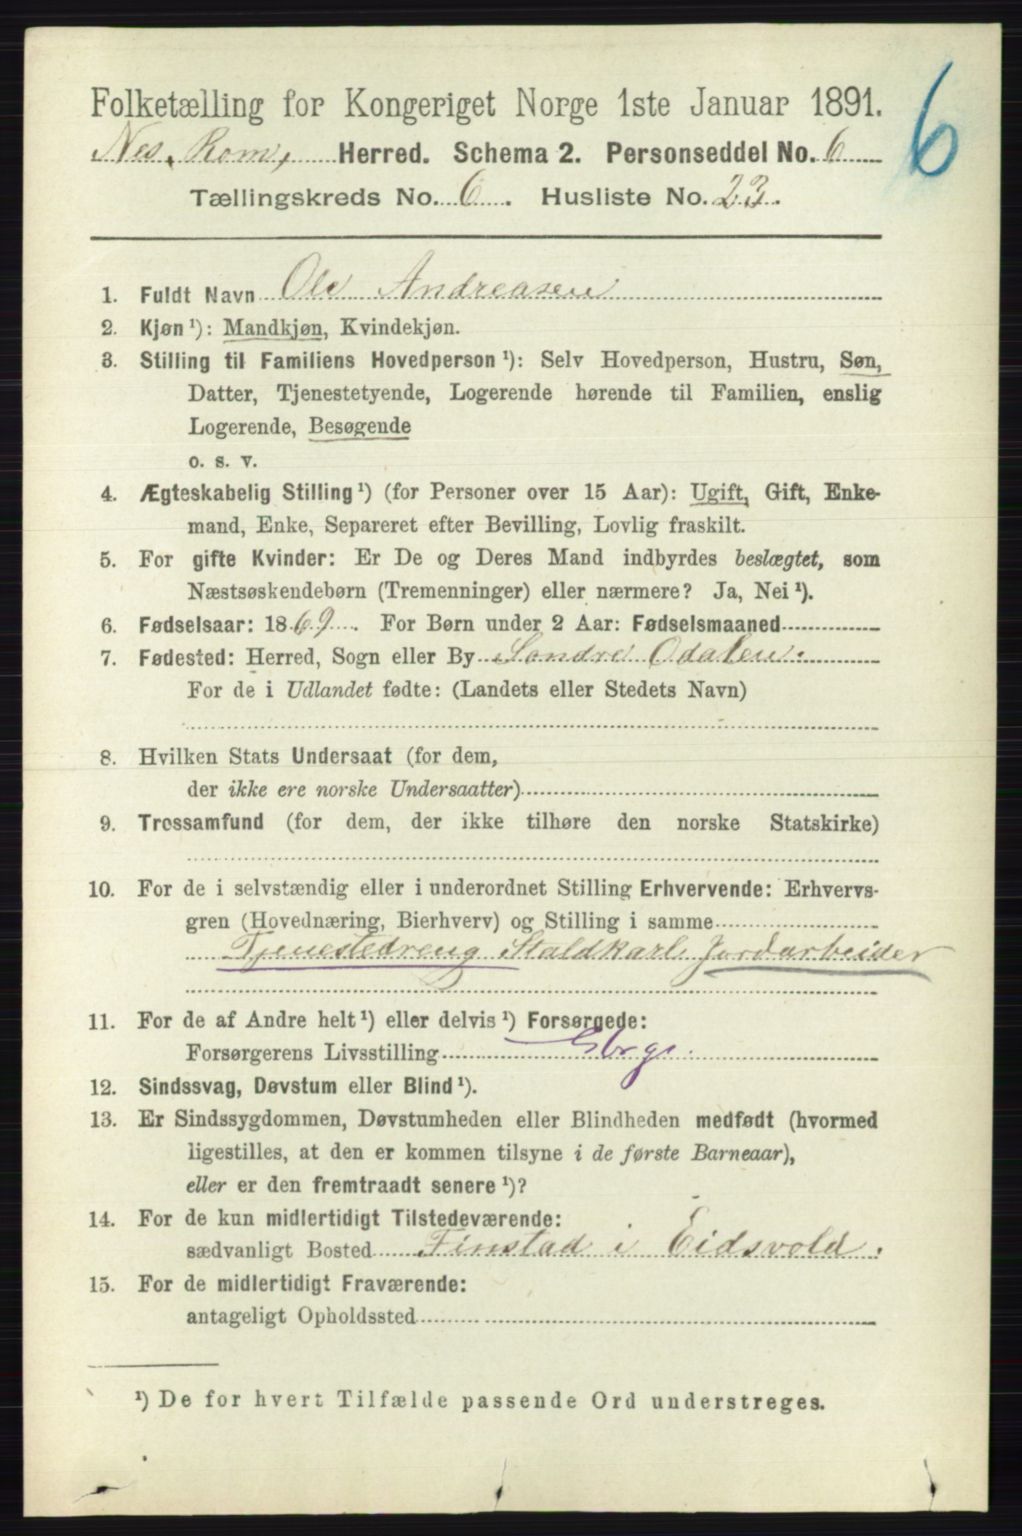 Folketælling for Kongeriget Norge 1ste Januar 1891.
6
Nes, Rom, Herred. Schema 2. Personseddel No. 6
Tællingskreds No. 6. Husliste No. 23.
1. Fuldt Navn Ole Andreasen
2. Kjøn ¹): Mandkjøn, Kvindekjøn.
3. Stilling til Familiens Hovedperson ¹): Selv Hovedperson, Hustru, Søn,
Datter, Tjenestetyende, Logerende hørende til Familien, enslig
Logerende, Besøgende
o. s. v.
4. Ægteskabelig Stilling ¹) (for Personer over 15 Aar): Ugift, Gift, Enke-
mand, Enke, Separeret efter Bevilling, Lovlig fraskilt.
5. For gifte Kvinder: Er De og Deres Mand indbyrdes beslægtet, som
Næstsøskendebørn (Tremenninger) eller nærmere? Ja, Nei ¹).
6. Fødselsaar: 1869. For Børn under 2 Aar: Fødselsmaaned
7. Fødested: Herred, Sogn eller By Søndre Odalen.
For de i Udlandet fødte: (Landets eller Stedets Navn)
8. Hvilken Stats Undersaat (for dem,
der ikke ere norske Undersaatter)
9. Trossamfund (for dem, der ikke tilhøre den norske Statskirke)
10. For de i selvstændig eller i underordnet Stilling Erhvervende: Erhvervs-
gren (Hovednæring, Bierhverv) og Stilling i samme
Tjenestedreng Staldkarl Jordarbeider
11. For de af Andre helt ¹) eller delvis ¹) Forsørgede:
Forsørgerens Livsstilling
12. Sindssvag, Døvstum eller Blind ¹).
13. Er Sindssygdommen, Døvstumheden eller Blindheden medfødt (hvormed
ligestilles, at den er kommen tilsyne i de første Barneaar),
eller er den fremtraadt senere ¹)?
14. For de kun midlertidigt Tilstedeværende:
sædvanligt Bosted Finstad i Eidsvold.
15. For de midlertidigt Fraværende:
antageligt Opholdssted
¹) De for hvert Tilfælde passende Ord understreges.